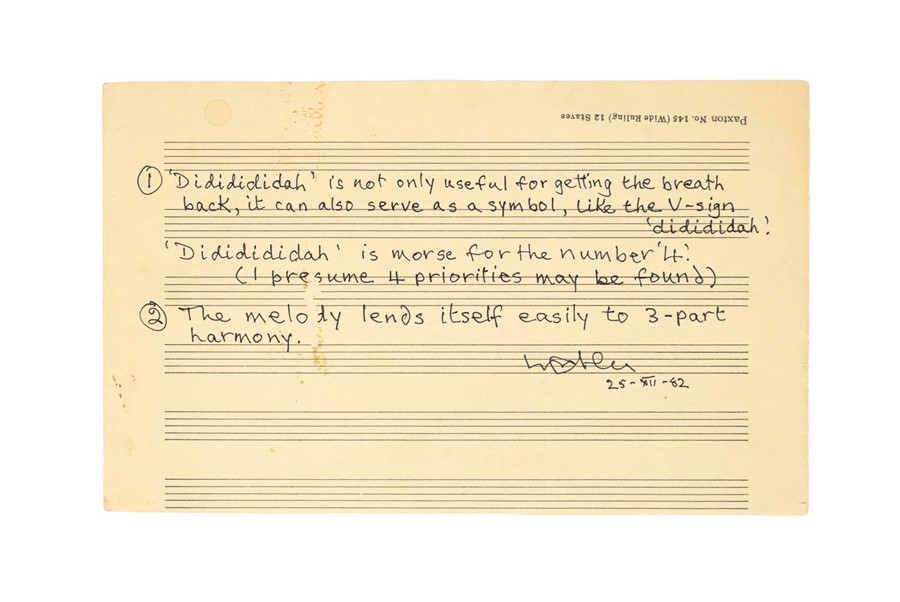 Paxton No. 145 (Wide Ruling) 12 Staves
① 'Didididididah' is not only useful for getting the breath
back, it can also serve as a symbol, like the V-sign
'didididah'.
'Didididididah' is morse for the number '4'.
(I presume 4 priorities may be found)
② The melody lends itself easily to 3-part
harmony.
25-XII-82